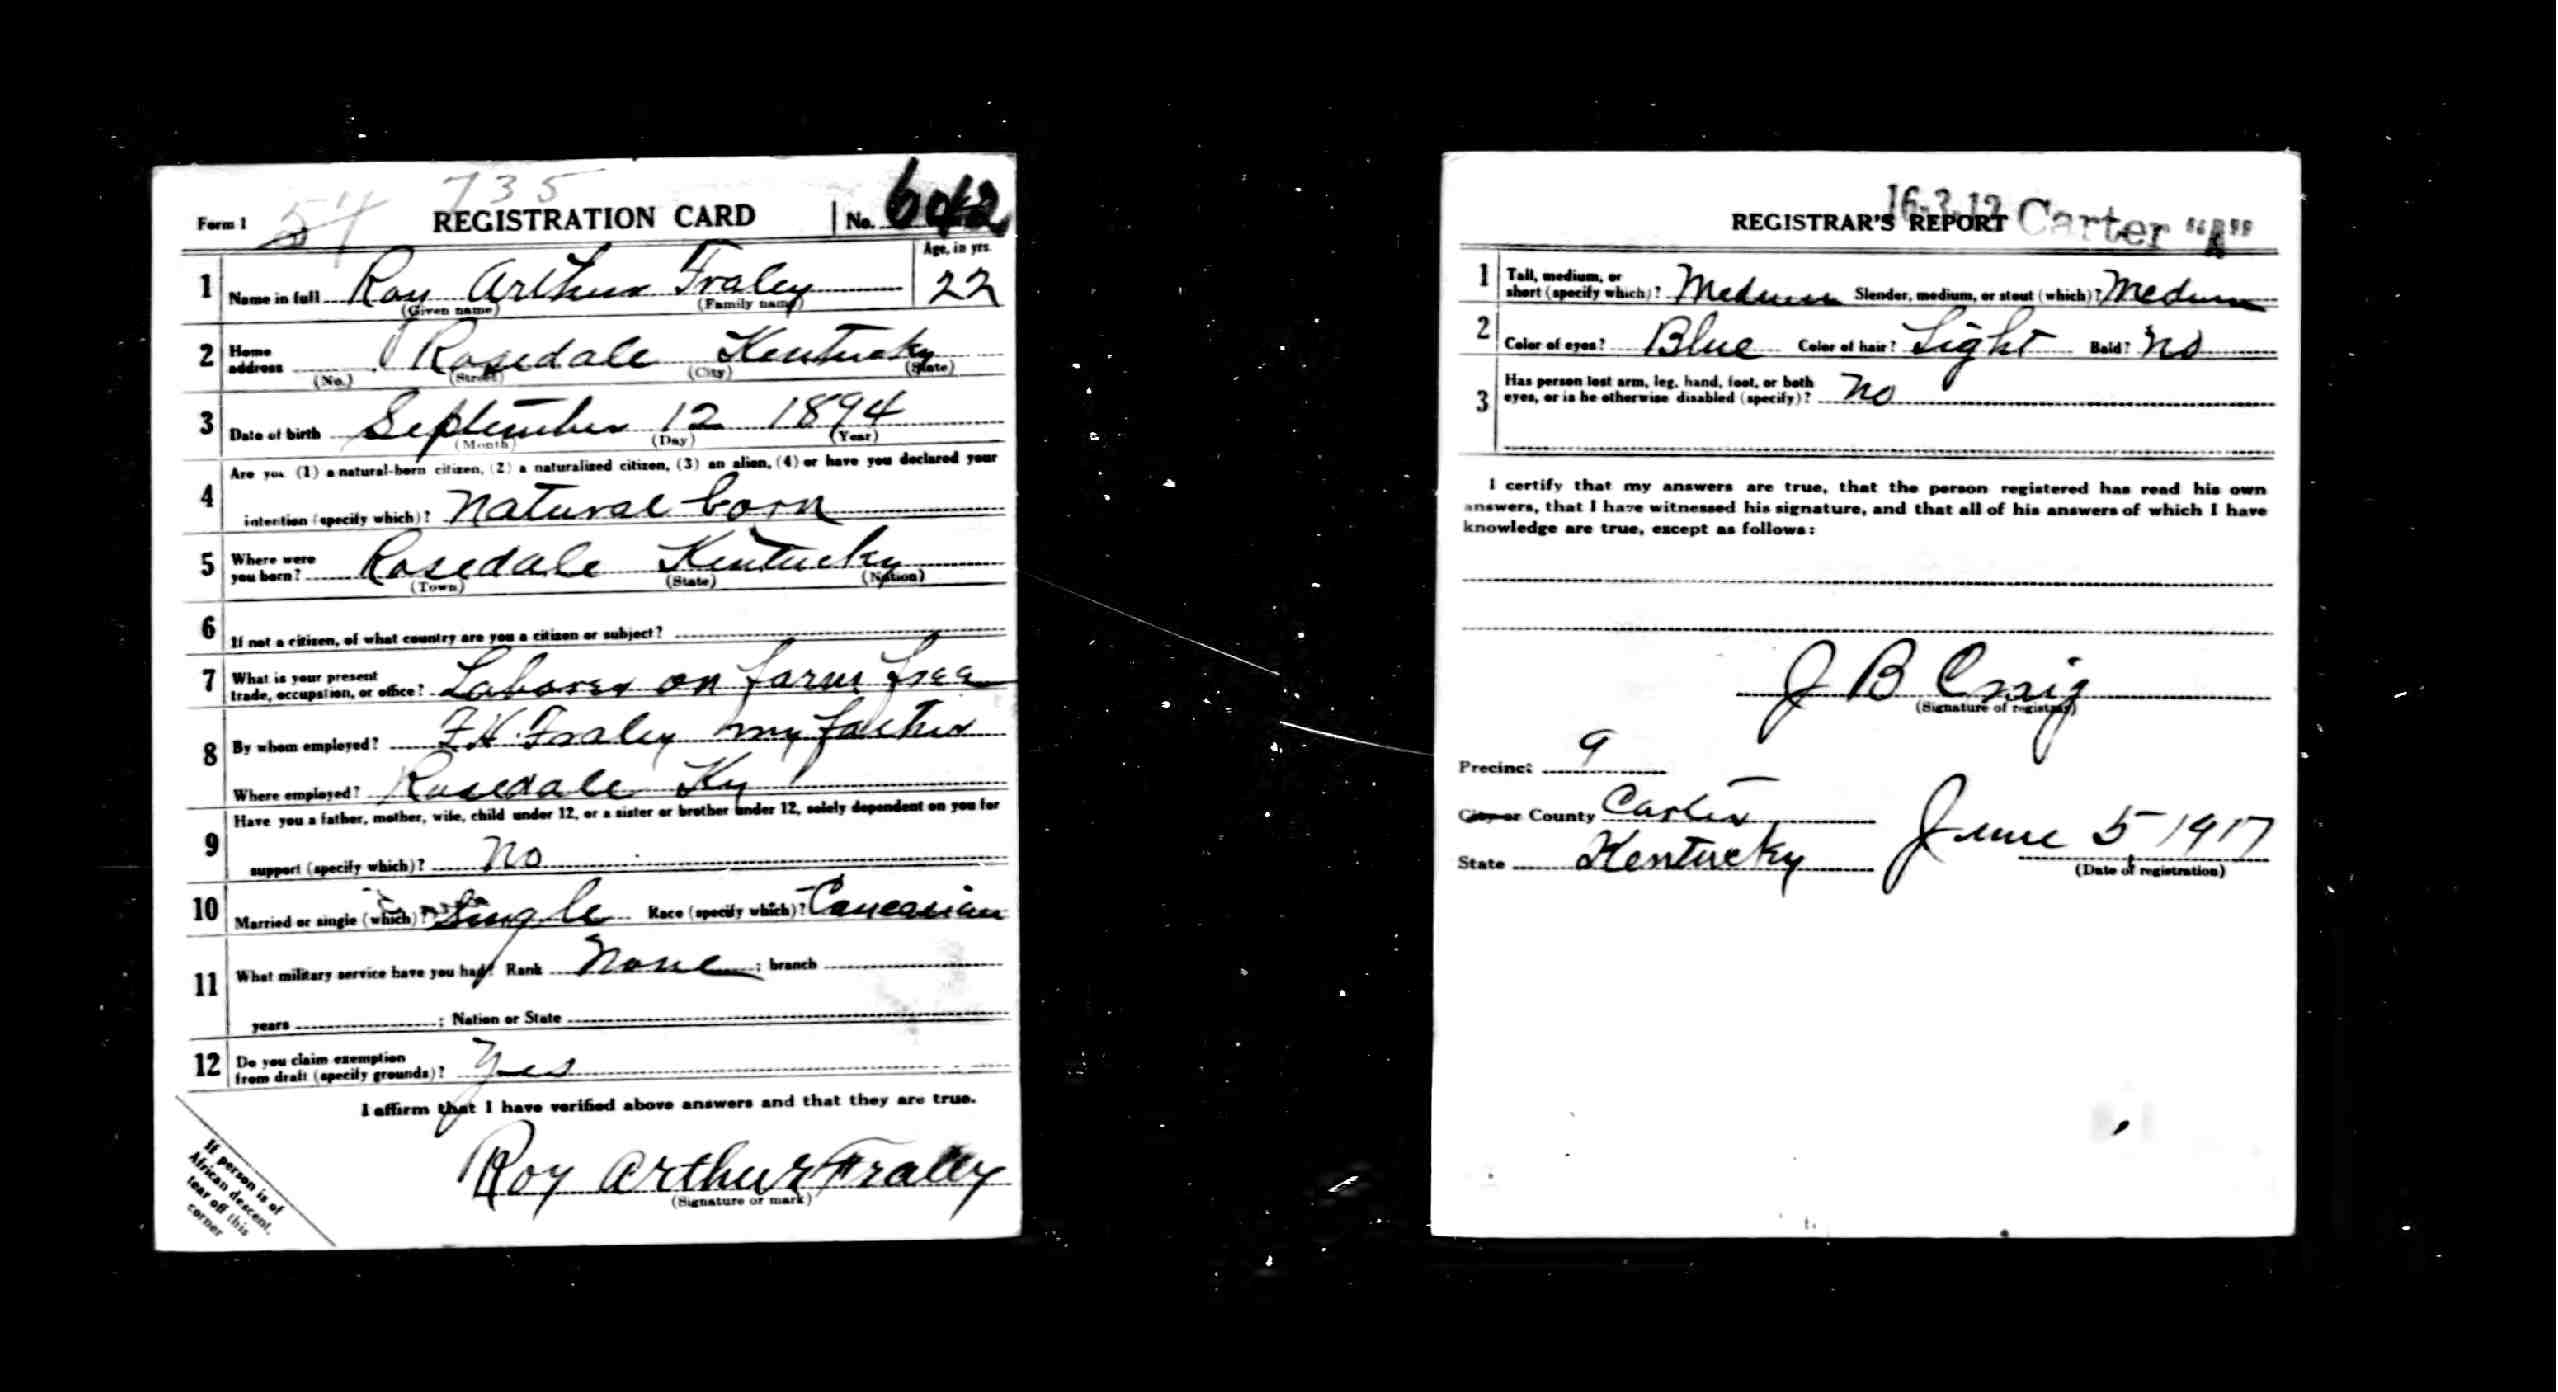 735
Form 1 54 REGISTRATION CARD No.
Age, in yrs.
1 Name in full Roy Arthur Fraley 22
(Given name) (Family name)
2 Home address Rosedale Kentucky
(No.) (Street) (City) (State)
3 Date of birth September 12 1894
(Month) (Day) (Year)
Are you (1) a natural-born citizen, (2) a naturalized citizen, (3) an alien, (4) or have you declared your
4 intention (specify which)? Natural born
5 Where were you born? Rosedale Kentucky
(Town) (State) (Nation)
6 If not a citizen, of what country are you a citizen or subject?
7 What is your present trade, occupation, or office? Laborer on farm
8 By whom employed? F.H. Fraley my father
Where employed? Rosedale Ky
Have you a father, mother, wife, child under 12, or a sister or brother under 12, solely dependent on you for
9 support (specify which)? No
10 Married or single (which)? Single Race (specify which)? Caucasian
11 What military service have you had? Rank None ; branch
years ; Nation or State
12 Do you claim exemption from draft (specify grounds)? Yes
I affirm that I have verified above answers and that they are true.
Roy Arthur Fraley
(Signature or mark)
If person is of
African descent,
tear off this
corner
16-3-12
REGISTRAR'S REPORT Carter "A"
1 Tall, medium, or short (specify which)? Medium Slender, medium, or stout (which)? Medium
2 Color of eyes? Blue Color of hair? Light Bald? No
3 Has person lost arm, leg, hand, foot, or both eyes, or is he otherwise disabled (specify)? No
I certify that my answers are true, that the person registered has read his own
answers, that I have witnessed his signature, and that all of his answers of which I have
knowledge are true, except as follows:
J B Craig
(Signature of registrar)
Precinct 9
City or County Carter
State Kentucky June 5 1917
(Date of registration)